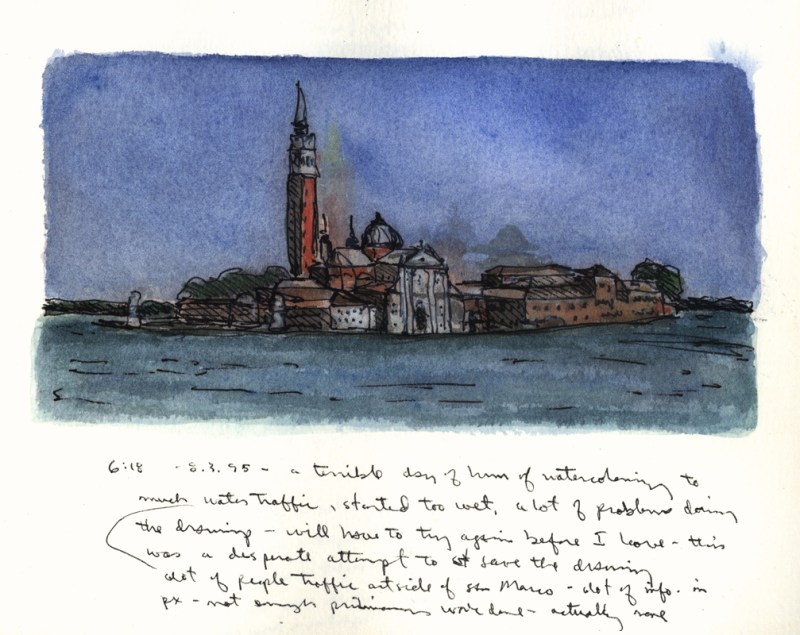 6:18 - 8.3.95 - a terrible day of of watercoloring to
much water traffic, started too wet, a lot of problems doing
the drawing - will have to try again before I leave - this
was a desperate attempt to save the drawing
alot of people traffic outside of san Marco - alot of info. in
px - not enough work done - actually none